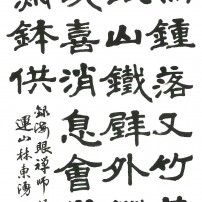 鍾落又竹
山鐵壁外
喜消息會
鉢供
錄海眼禪師
連山林東湧